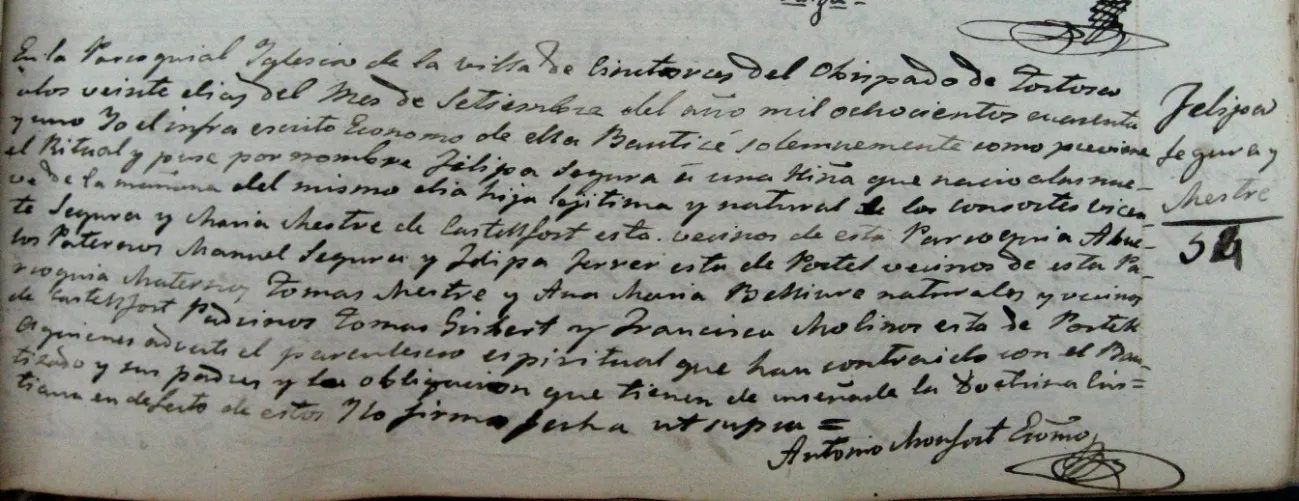 En la Parroquial Yglesia de la villa de Cinctorres del Obispado de Tortosa
a los veinte dias del Mes de Setiembre del año mil ochocientos cuarenta
y uno Yo el infra escrito Economo de ella Bauticé solemnemente como previene
el Ritual y puse por nombre Felipa Segura á una Niña que nacio a las nue-
ve de la mañana del mismo dia hija lejitima y natural de los consortes Vicen
te Segura y Maria Mestre de Castellfort esta. vecinos de esta Parroquia Abue-
los Paternos Manuel Segura y Felipa Ferrer esta de Portel vecinos de esta Pa-
rroquia Maternos Tomas Mestre y Ana Maria Bellviure naturales y vecinos
de Castellfort Padrinos Tomas Gisbert y Francisca Molinos esta de Portell
a quienes adverti el parentesco espiritual que han contraido con el Bau-
tizado y sus padres y la obligacion que tienen de enseñarle la Doctrina Cris=
tiana en defecto de estos Y lo firmo fecha ut supra =
Antonio Monfort Ecōmo
Felipa
Segura y
Mestre